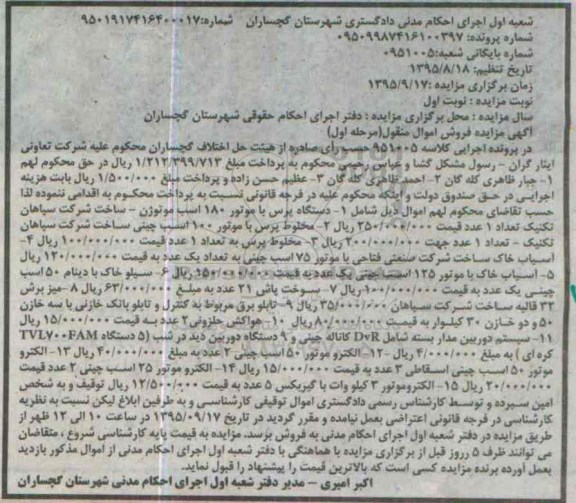 شعبه اول اجرای احکام مدنی دادگستری شهرستان گچساران شماره:۹۵۰۱۹۱۷۴۱۶۴۰۰۰۱۷
شماره پرونده: ۰۹۵۰۹۹۸۷۴۱۶۱۰۰۳۹۷
شماره بایگانی شعبه:۰۹۵۱۰۰۵
تاریخ تنظیم: ۱۳۹۵/۸/۱۸
زمان برگزاری مزایده :۱۳۹۵/۹/۱۷
نوبت مزایده : نوبت اول
سال مزایده : محل برگزاری مزایده : دفتر اجرای احکام حقوقی شهرستان گچساران
آگهی مزایده فروش اموال منقول(مرحله اول)
در پرونده اجرایی کلاسه ۹۵۱۰۰۵ حسب رأی صادره از هیئت حل اختلاف گچساران محکوم علیه شرکت تعاونی
ایثار گران - رسول مشکل گشا و عباس رحیمی محکوم به پرداخت مبلغ ۱/۲۱۲/۳۹۹/۷۱۳ ریال در حق محکوم لهم
۱- جبار طاهری کله گان ۲- احمد طاهری کله گان ۳- عظیم حسن زاده و پرداخت مبلغ ۱/۵۰۰/۰۰۰ ریال بابت هزینه
اجرایی در حق صندوق دولت و اینکه محکوم علیه در فرجه قانونی نسبت به پرداخت محکوم به اقدامی ننموده لذا
حسب تقاضای محکوم لهم اموال ذیل شامل ۱- دستگاه پرس با موتور ۱۸۰ اسب موتوژن - ساخت شرکت سپاهان
تکنیک تعداد ۱ عدد قیمت ۲۵۰/۰۰۰/۰۰۰ ریال ۲- مخلوط پرس با موتور ۱۰۰ اسب چینی ساخت شرکت سپاهان
تکنیک - تعداد ۱ عدد جهت ۲۰۰/۰۰۰/۰۰۰ ریال ۳- مخلوط پرس به تعداد ۱ عدد قیمت ۱۰۰/۰۰۰/۰۰۰ ریال ۴-
آسیاب خاک ساخت شرکت صنعتی فتاحی با موتور ۷۵ اسب چینی به تعداد یک عدد به قیمت ۱۲۰/۰۰۰/۰۰۰ ریال
۵- آسیاب خاک با موتور ۱۲۵ اسب چینی یک عدد به قیمت ۱۵۰/۰۰۰/۰۰۰ ریال ۶- سیلو خاک با دینام ۵۰ اسب
چینی یک عدد به قیمت ۱۰۰/۰۰۰/۰۰۰ ریال ۷- سوخت پاش ۲۱ عدد به مبلغ ۶۳/۰۰۰/۰۰۰ ریال ۸- میز برش
۳۲ قالبه ساخت شرکت سپاهان ۳۵/۰۰۰/۰۰۰ ریال ۹- تابلو برق مربوط به کنترل و تابلو بانک خازنی با سه خازن
۵۰ و دو خازن ۳۰ کیلوار به قیمت ۸۰/۰۰۰/۰۰۰ ریال ۱۰- هواکش حلزونی ۲ عدد به قیمت ۱۵/۰۰۰/۰۰۰ ریال
۱۱- سیستم دوربین مدار بسته شامل DvR کاناله چینی و ۹ دستگاه دوربین دید در شب (۵ دستگاه TVL۷۰۰FAM
کره ای ) به مبلغ ۴/۰۰۰/۰۰۰ ریال ۱۲- الکترو موتور ۵۰ اسب چینی ۲ عدد به مبلغ ۴۰/۰۰۰/۰۰۰ ریال ۱۳- الکترو
موتور ۵۰ اسب چینی اسقاطی ۳ عدد به قیمت ۱۵/۰۰۰/۰۰۰ ریال ۱۴- الکترو موتور ۲۵ اسب چینی ۲ عدد قیمت
۲۰/۰۰۰/۰۰۰ ریال ۱۵- الکتروموتور ۳ کیلو وات با گیربکس ۵ عدد به قیمت ۱۲/۵۰۰/۰۰۰ ریال توقیف و به شخص
امین سپرده و توسط کارشناس رسمی دادگستری اموال توقیفی کارشناسی و به طرفین ابلاغ لیکن نسبت به نظریه
کارشناسی در فرجه قانونی اعتراضی بعمل نیامده و مقرر گردید در تاریخ ۱۳۹۵/۰۹/۱۷ در ساعت ۱۰ الی ۱۲ ظهر از
طریق مزایده در دفتر شعبه اول اجرای احکام مدنی به فروش برسد. مزایده به قیمت پایه کارشناسی شروع ، متقاضان
می توانند ظرف ۵ روز قبل از برگزاری مزایده با هماهنگی با دفتر شعبه اول اجرای احکام مدنی از اموال مذکور بازدید
بعمل آورده برنده مزایده کسی است که بالاترین قیمت را پیشنهاد را قبول نماید.
اکبر امیری - مدیر دفتر شعبه اول اجرای احکام مدنی شهرستان گچساران